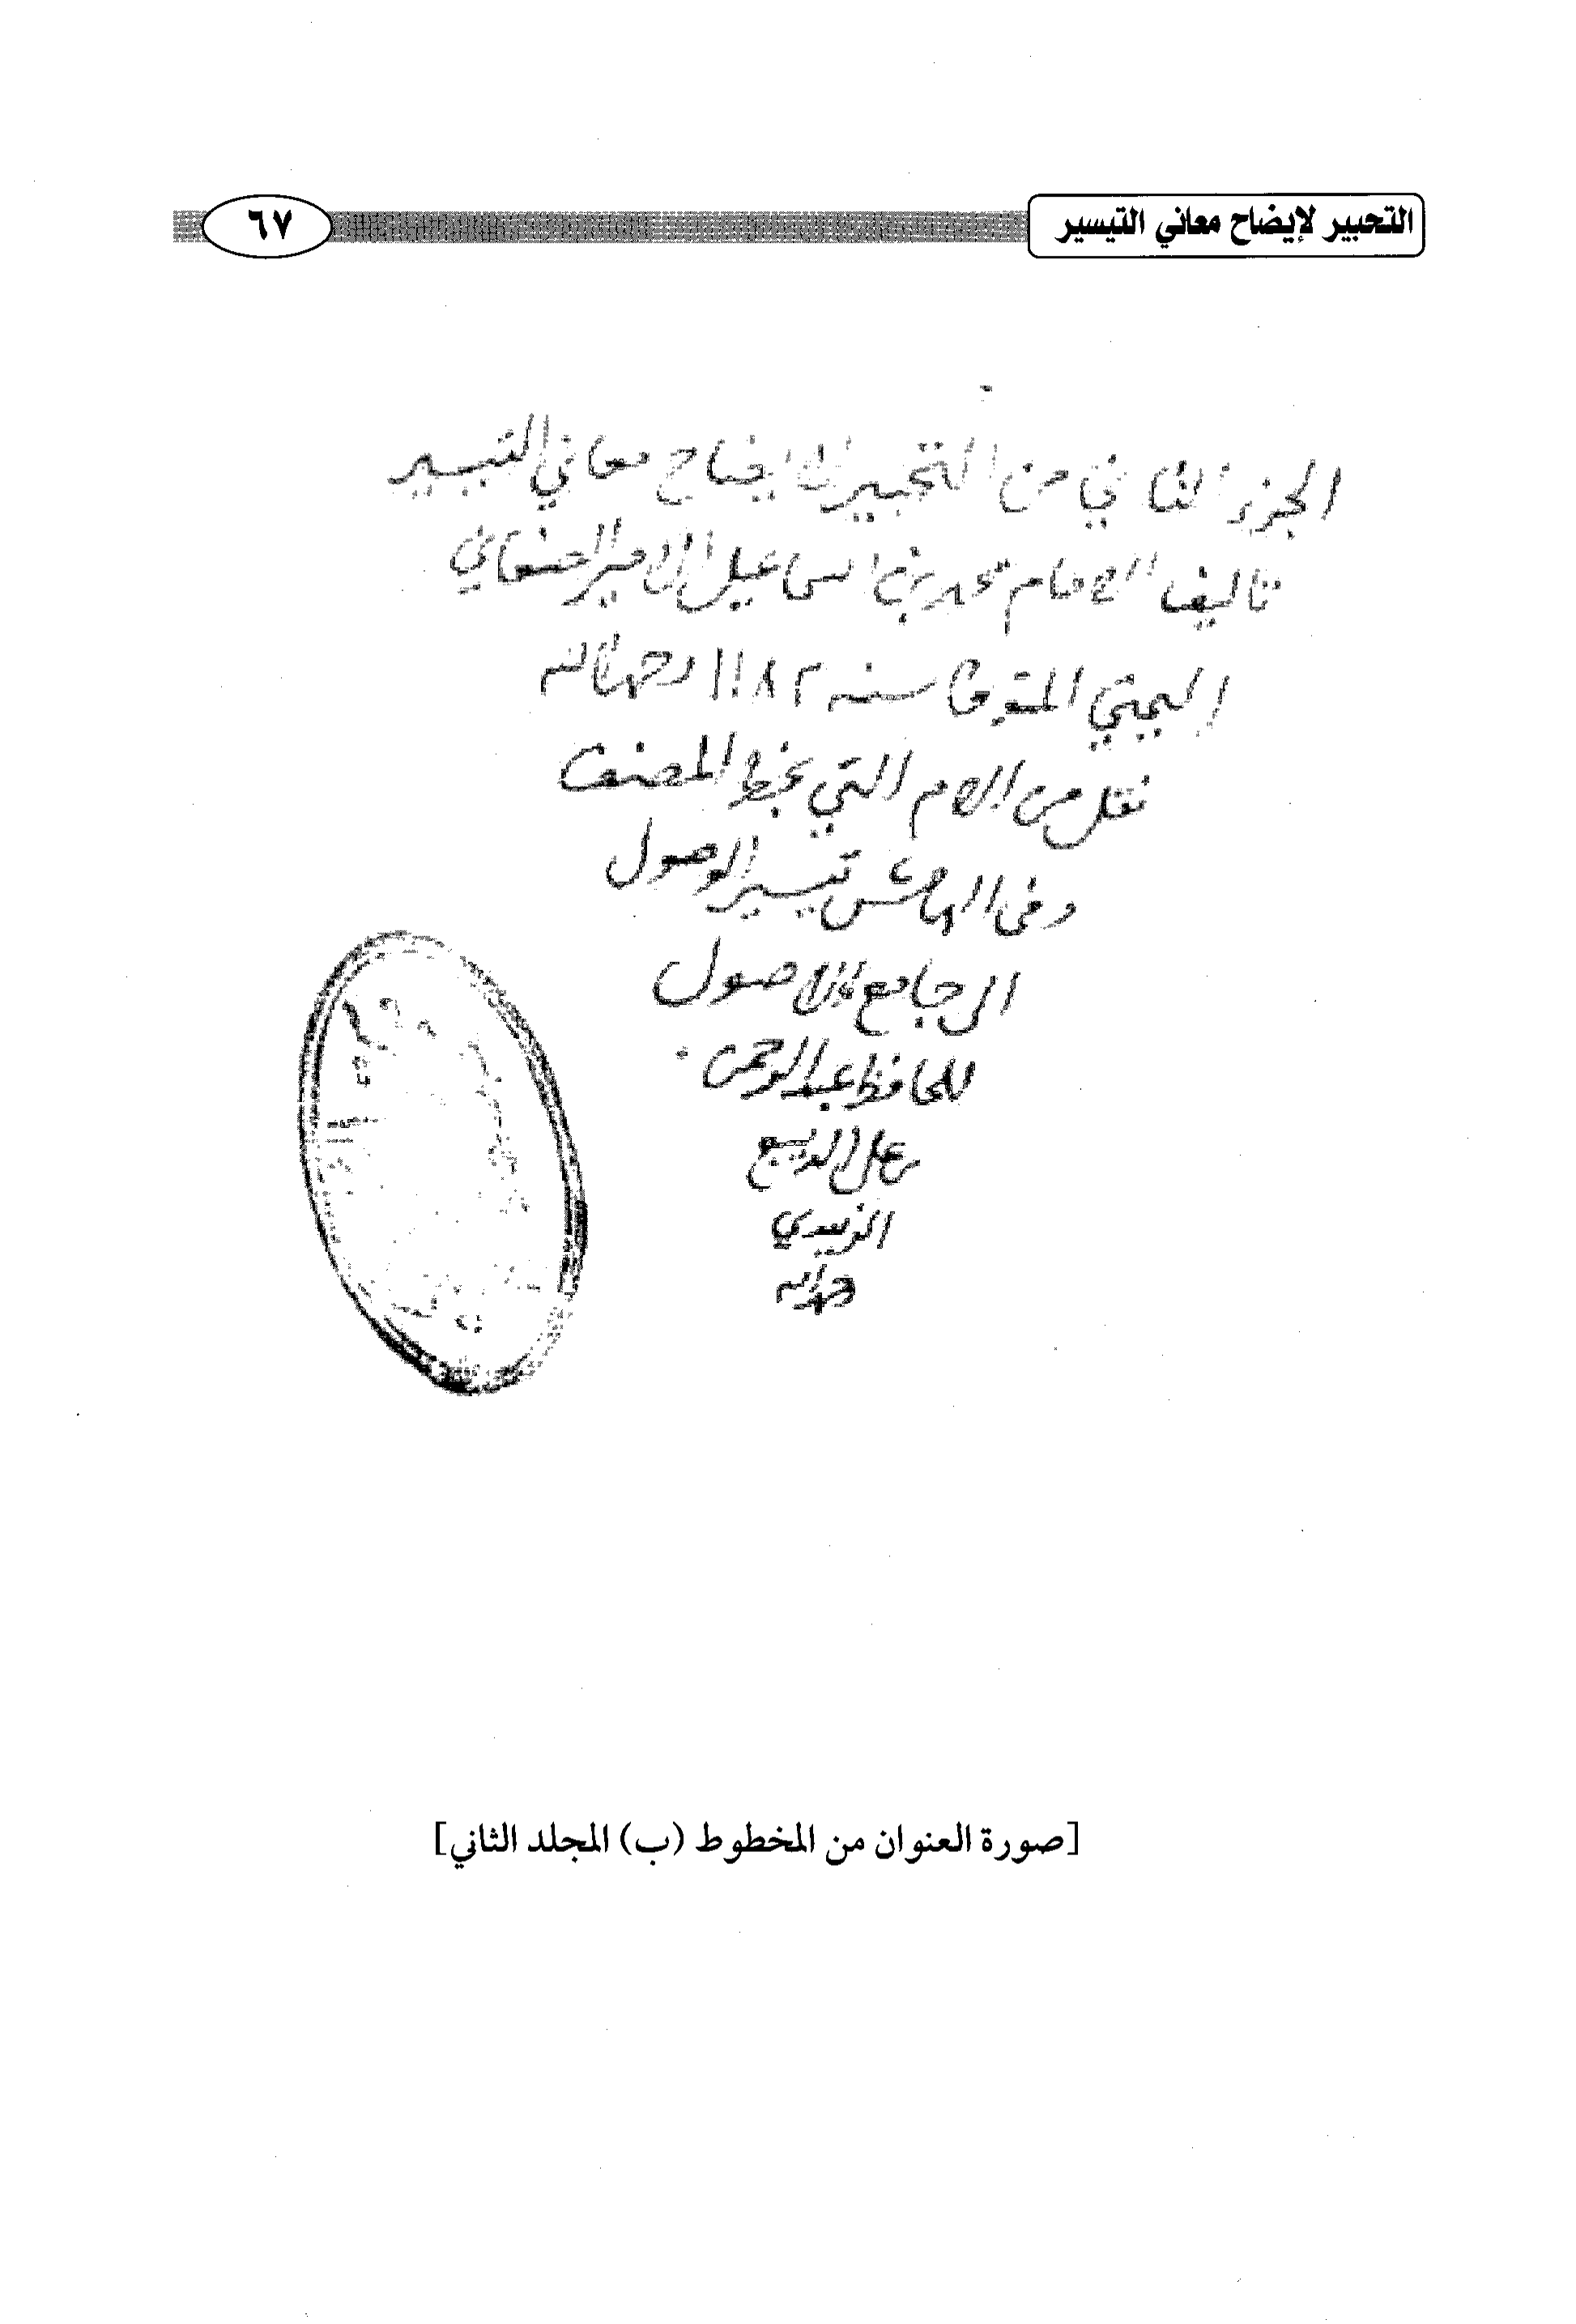 التحبير لإيضاح معاني التيسير
٦٧
الجزء الثاني من التحبير لايضاح معاني التيسير
تاليف الامام محمد بن اسماعيل الامير الصنعاني
اليمني المتوفا سنه ١١٨٢ رحمه الله
نقل من الام التي بخط المصنف
وفي الهامش تيسير الوصول
الى جامع الاصول
للحافظ عبد الرحمن
بن علي الديبع
الزبيدي
رحمه الله
[صورة العنوان من المخطوط (ب) المجلد الثاني]